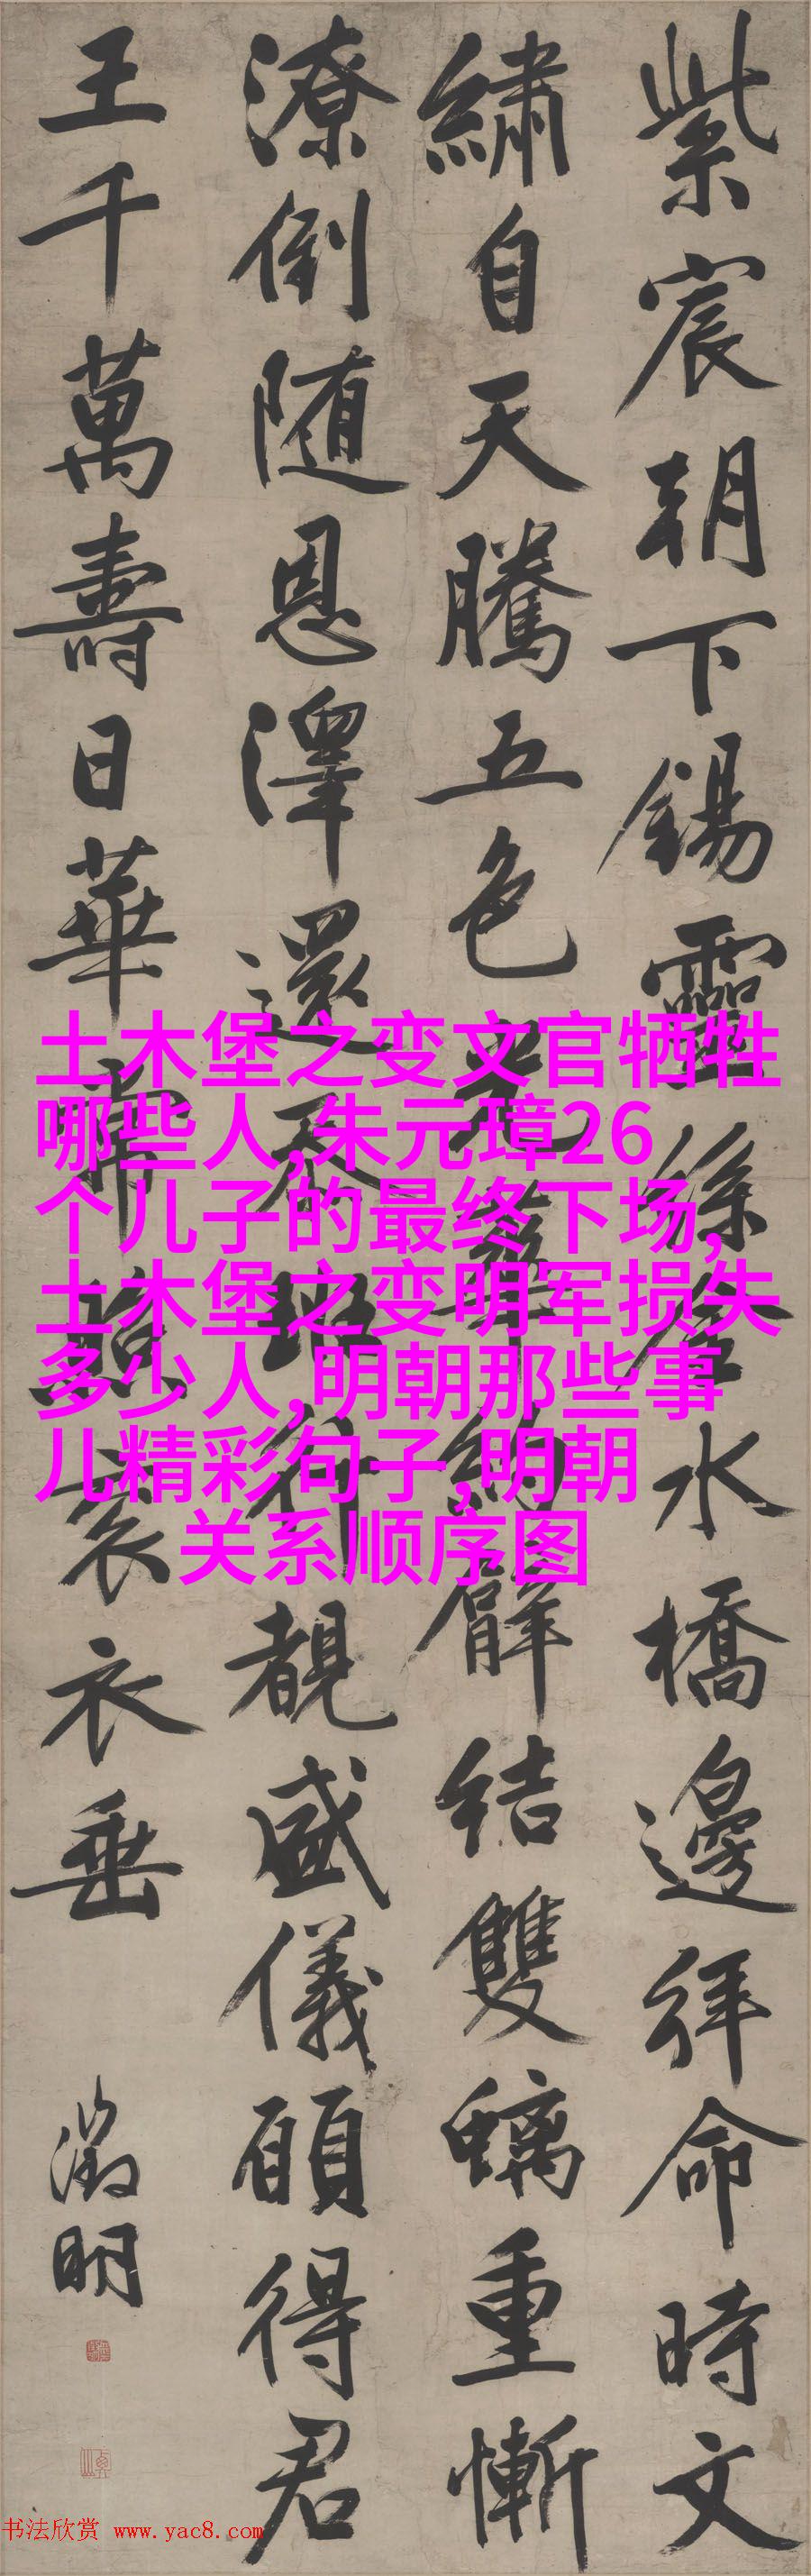 紫宸朝下錫靈絲金水橋邊拜命時文
繡自天騰五色光華約臂結雙螭重慚
潦倒随恩澤還忝班行覩盛儀願得君
王千萬壽日華常照袞衣垂
徵明
土木堡之变文官牺牲
哪些人,朱元璋26
个儿子的最终下场,
土木堡之变明军损失
多少人,明朝那些事
儿精彩句子,明朝
关系顺序图
书法欣赏 www.yac8.com